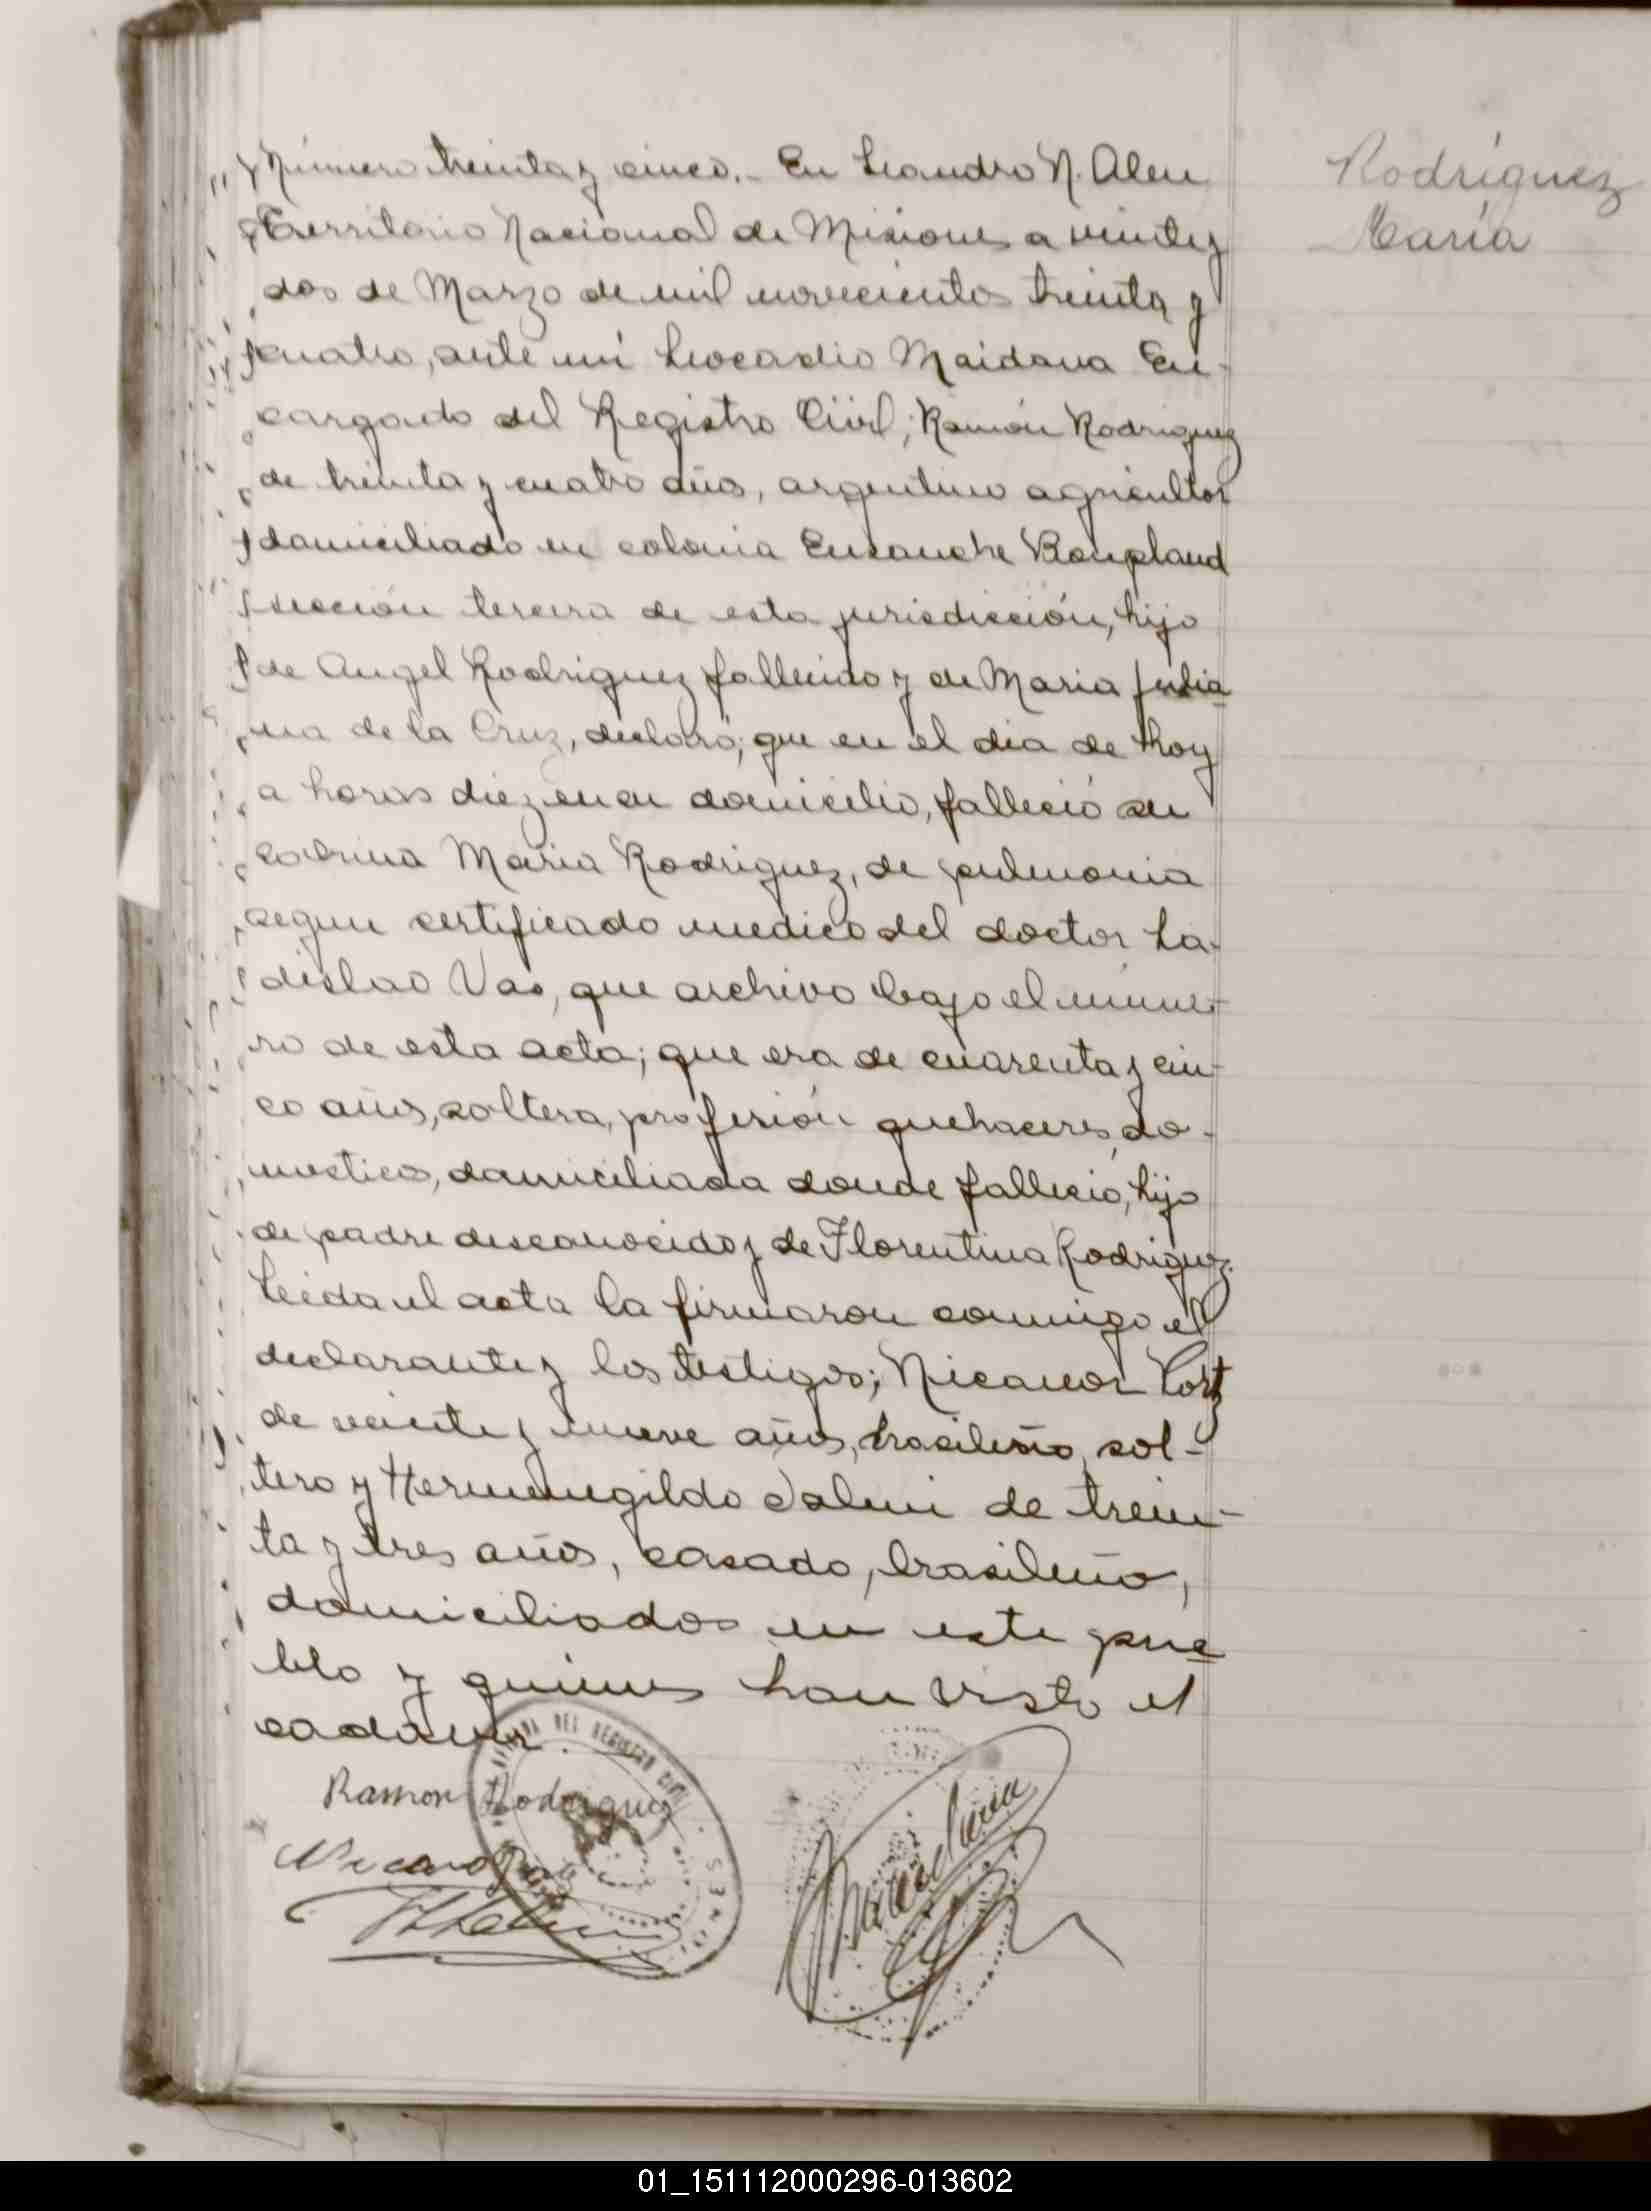 Número treinta y cinco.- En Leandro N. Alem
Rodríguez
Territorio Nacional de Misiones a veinte y
María
dos de Marzo de mil novecientos treinta y
cuatro, ante mi Leocadio Maidana En-
cargado del Registro Civil; Ramón Rodriguez
de treinta y cuatro años, argentino agricultor
domiciliado en colonia Ensanche Bonpland
sección tercera de esta jurisdicción, hijo
de Angel Rodriguez fallecido y de Maria Julia
na de la Cruz, declaró; que en el dia de hoy
a horas diez en su domicilio, falleció su
sobrina Maria Rodriguez, de pulmonia
segun certificado medico del doctor La-
dislao Vas, que archivo bajo el núme-
ro de esta acta; que era de cuarenta y cin-
co años, soltera, profesión quehaceres do-
mesticos, domiciliada donde falleció, hijo
de padre desconocido y de Florentina Rodriguez.
Leida el acta la firmaron conmigo el
declarante y los testigos; Nicanor
de veinte y nueve años, brasileño, sol-
tero y Hermenegildo Salvi de trein-
ta y tres años, casado, brasileño,
domiciliados en este pue
blo y quienes han visto el
cadaver.
DEL REGISTRO CIVIL
Ramon Rodriguez
01_151112000296-013602